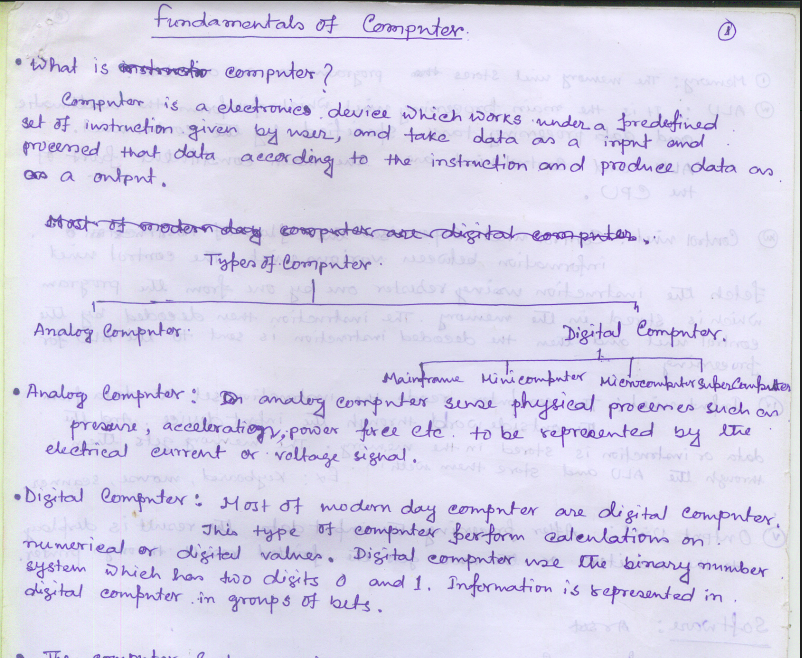 Fundamentals of Computer.
1
• What is instructio computer?
Computer is a electronics device which works under a predefined
set of instruction given by user, and take data as a input and
processed that data according to the instruction and produce data as
as a output.
Most of modern day computer are digital computer.
Types of Computer.
Analog Computer.
Digital Computer.
Mainframe Minicomputer Microcomputer SuperComputer
• Analog Computer: In analog computer sense physical processes such as
pressure, acceleration, power fire etc. to be represented by the
electrical current or voltage signal.
• Digital Computer: Most of modern day computer are digital computer.
This type of computer perform calculations on
numerical or digited values. Digital computer use the binary number
system which has two digits 0 and 1. Information is represented in
digital computer in groups of bits.
• The computer